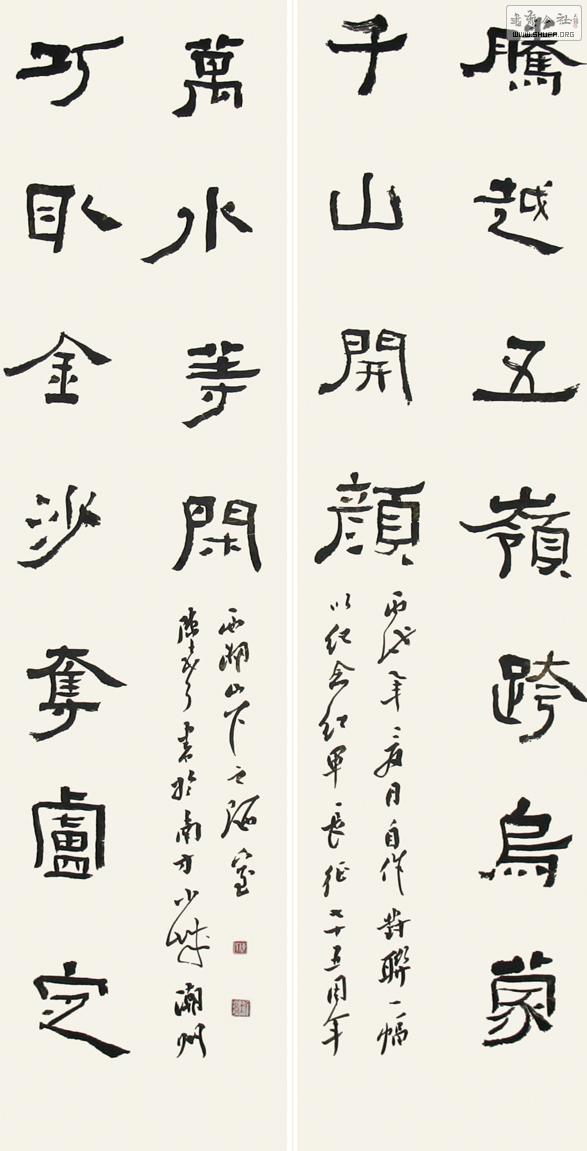 騰越五嶺跨烏蒙
千山開顏
丙戌年亥月自作對聯一幅
以紀念紅軍長征七十五周年
巧取金沙奪盧定
萬水等閑
陳書於南方小城潮州
西湖山下之陋室
書法公社
WWW.SHUFA.ORG